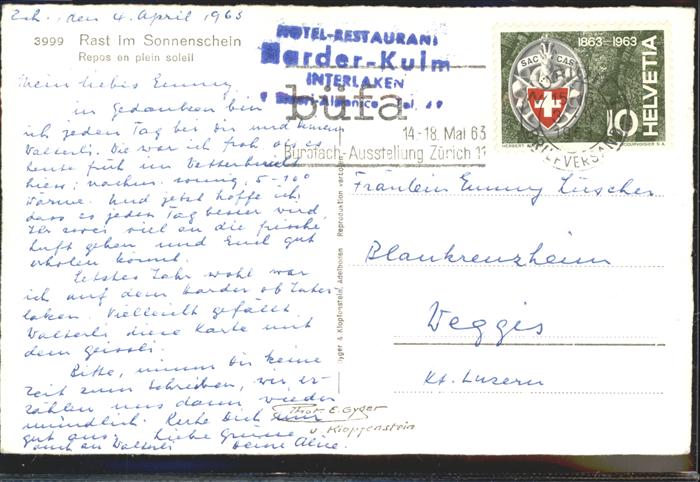 Zch. den 4. April 1963
3999 Rast im Sonnenschein
Repos en plein soleil
Mein liebes Emmy
in Gedanken bin
ich jeden Tag bei Dir und
Walterli. Wie war ich froh als es
heute früh im Wetterbericht
hiess: sonnig, 5-10°
Wärme. Und jetzt hoffe ich
dass es jeden Tag besser wird,
Ihr zwei viel an die frische
Luft gehen und Euch gut
erholen könnt.
Letztes Jahr wohl war
ich auf dem Harder ob Inter-
laken. Vielleicht gefällt
Walterli diese Karte mit
dem Geissli.
Bitte, nimm Dir keine
Zeit zum Schreiben, wir er-
zählen uns dann wieder
mündlich. Ruhe Dich nur
gut aus. Liebe Grüsse
auch an Walterli Deine Alice.
HOTEL-RESTAURANT
Harder-Kulm
INTERLAKEN
büfa
14-18. Mai 63
Bürofach-Ausstellung Zürich 11
SAC CAS
1863-1963
HELVETIA
10
COURVOISIER S.A.
BRIEFVERSAND
Gyger & Klopfenstein, Adelboden Reproduktion verboten
Fräulein Emmy Lüscher
Blaukreuzheim
Weggis
Kt. Luzern
Phot. E. Gyger
u. Klopfenstein